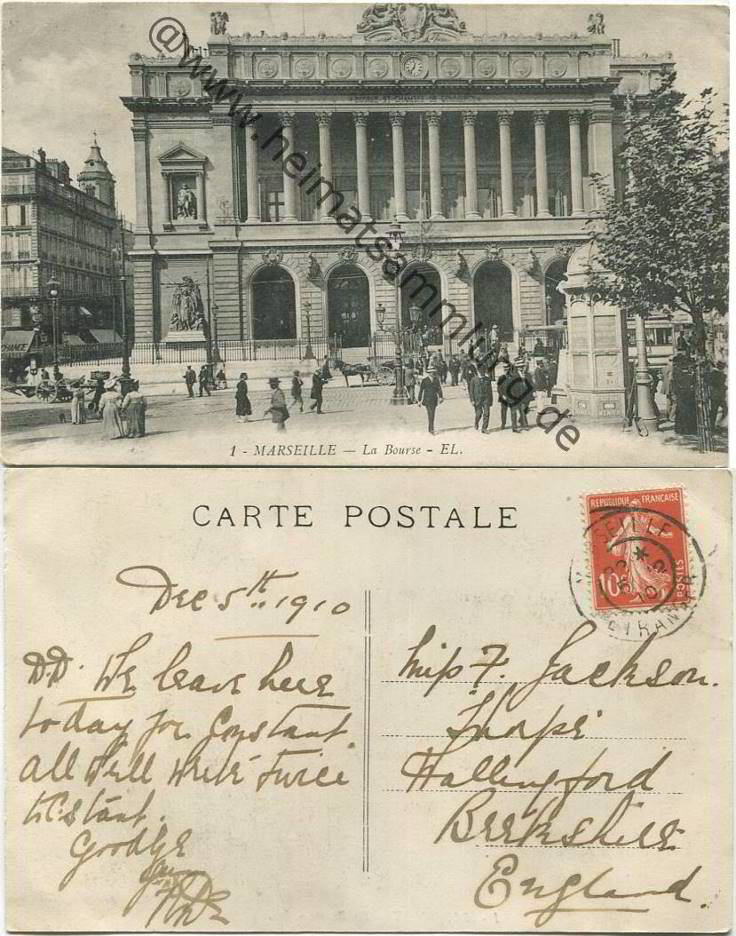 @www.heimatsammlung.de
1 - MARSEILLE — La Bourse - EL.
CARTE POSTALE
REPUBLIQUE FRANÇAISE
10
POSTES
Dec 5th 1910
D.D. We leave here
today for Constant
all well write twice
to Cstant.
Goodbye
Miss F. Jackson.
Thorpe
Wallingford
Berkshire
England.